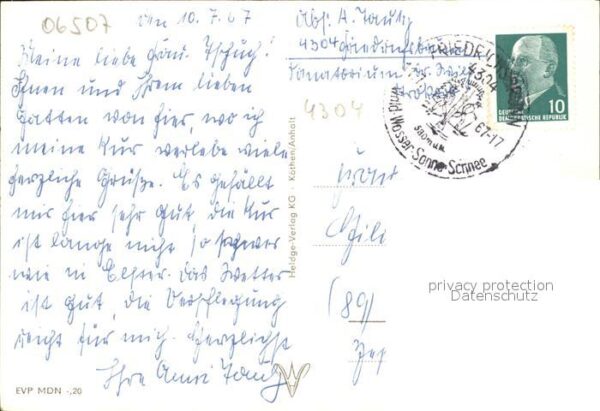 06507
den 10.7.67
Meine liebe Frau
Ihnen und Ihrem lieben
Gatten von hier, wo ich
meine Kur verlebe viele
herzliche Grüße. Es gefällt
mir hier sehr gut, die Kur
ist lange nicht so schwer
wie in Elster. Das Wetter
ist gut, die Verpflegung
reicht für mich. Herzlichst
Ihre Anni
EVP MDN -,20
Abs: A.
4304
Sanatorium
4304
Heldge-Verlag KG · Köthen/Anhalt
FRIEDRICHSBRUNN
4304
67-17
Wald Wasser-Sonne-Schnee
DEUTSCHE
DEMOKRATISCHE REPUBLIK
10
Frau
(89)
privacy protection
Datenschutz